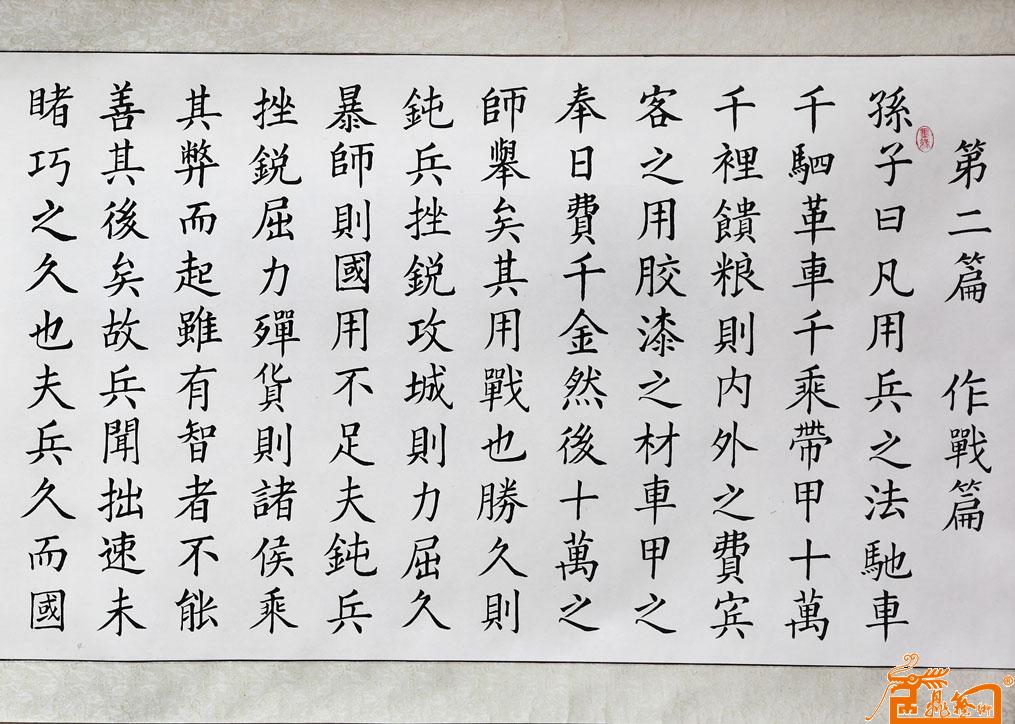 第二篇 作戰篇
孫子曰凡用兵之法馳車
千駟革車千乘帶甲十萬
千裡饋粮則内外之費宾
客之用胶漆之材車甲之
奉日費千金然後十萬之
師舉矣其用戰也勝久則
鈍兵挫鋭攻城則力屈久
暴師則國用不足夫鈍兵
挫鋭屈力殫貨則諸侯乘
其弊而起雖有智者不能
善其後矣故兵聞拙速未
睹巧之久也夫兵久而國